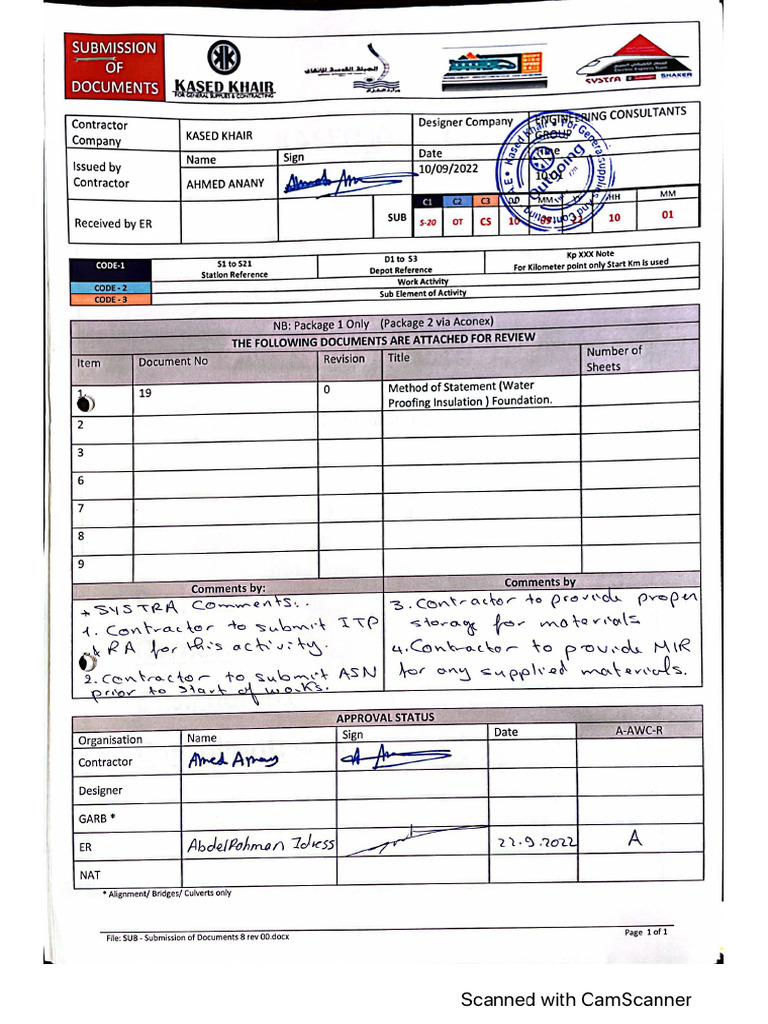 SUBMISSION
OF
DOCUMENTS
KASED KHAIR
FOR GENERAL SUPPLIES & CONTRACTING
الهيئة القومية للأنفاق
وزارة النقل
SYSTRA
SHAKER
Contractor Company
KASED KHAIR
Designer Company
ENGINEERING CONSULTANTS GROUP
Issued by Contractor
Name
Sign
Date
AHMED ANANY
10/09/2022
Received by ER
SUB
C1 C2 C3 DD MM HH MM
S-20 OT CS 10 09 22 10 01
Kased Khair For General supplies And Contracting
Outgoing
CODE-1
S1 to S21
Station Reference
D1 to S3
Depot Reference
Kp XXX Note
For Kilometer point only Start Km is used
CODE - 2
Work Activity
CODE - 3
Sub Element of Activity
NB: Package 1 Only (Package 2 via Aconex)
THE FOLLOWING DOCUMENTS ARE ATTACHED FOR REVIEW
Item
Document No
Revision
Title
Number of Sheets
1.
19
0
Method of Statement (Water
Proofing Insulation ) Foundation.
2
3
6
7
8
9
Comments by:
* SYSTRA Comments:.
1. Contractor to submit ITP
& RA for this activity.
2. Contractor to submit ASN
prior to start of works.
Comments by
3. Contractor to provide proper
storage for materials
4. Contractor to provide MIR
for any supplied materials.
APPROVAL STATUS
Organisation
Name
Sign
Date
A-AWC-R
Contractor
Amed Amany
Designer
GARB *
ER
AbdelRahman Idress
22.9.2022
A
NAT
* Alignment/ Bridges/ Culverts only
File: SUB - Submission of Documents 8 rev 00.docx
Page 1 of 1
Scanned with CamScanner